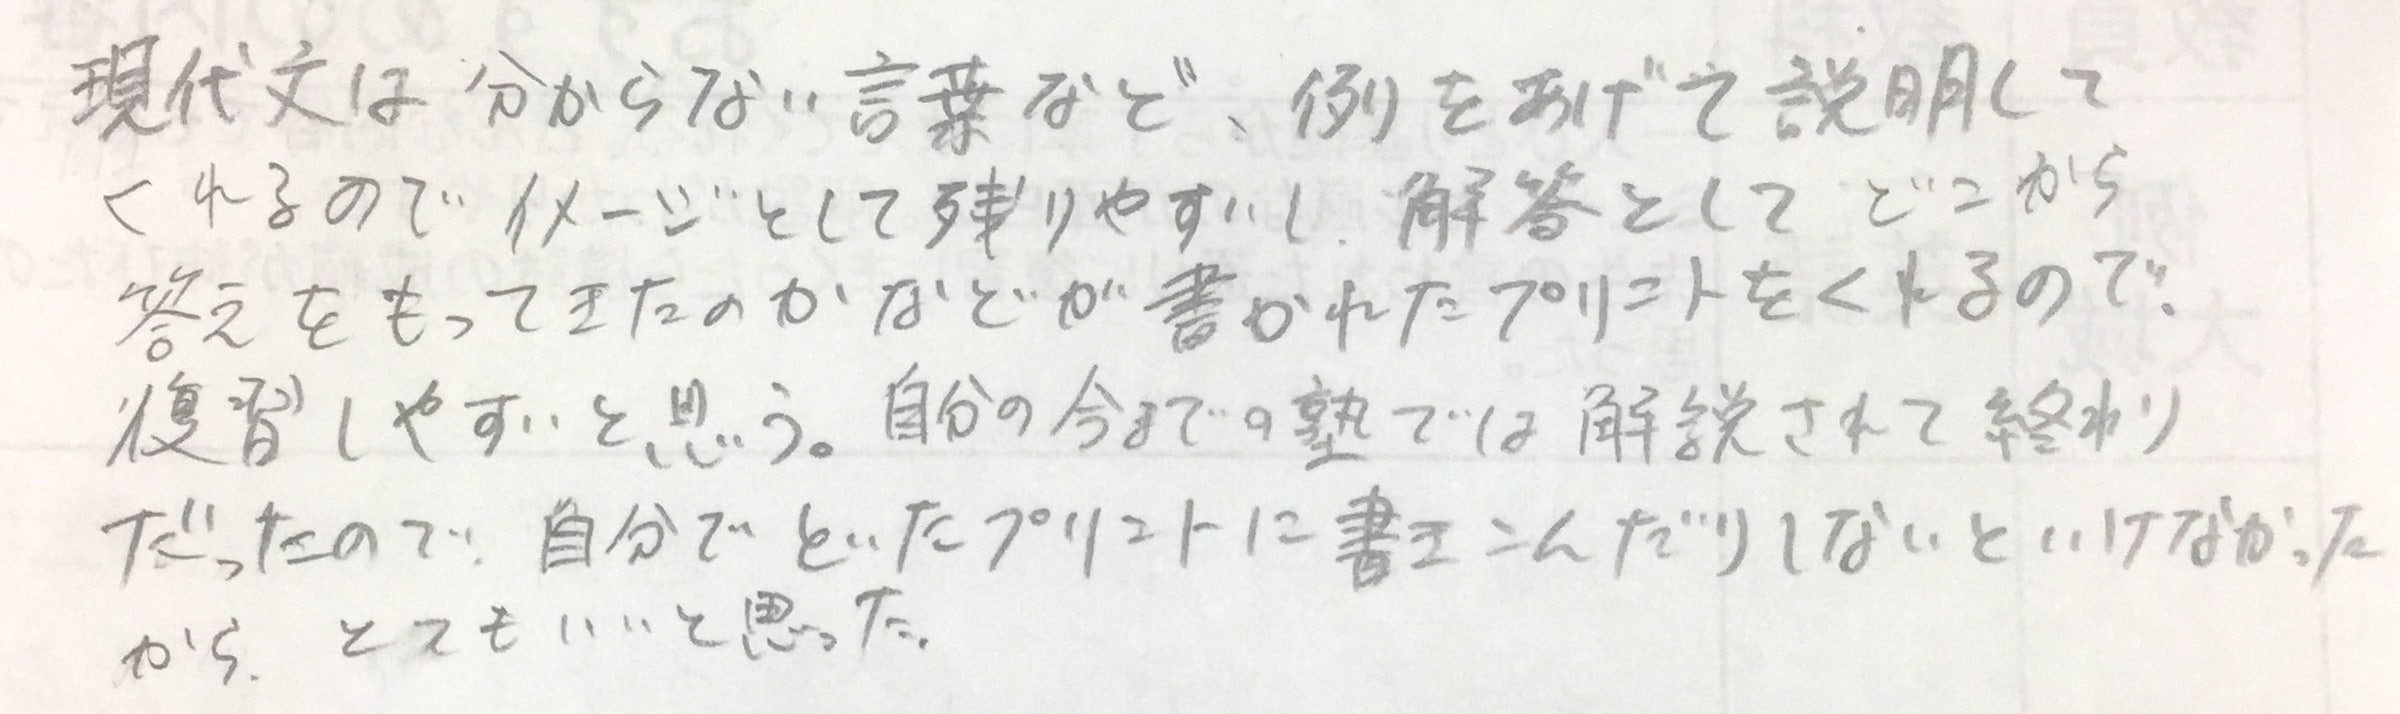 現代文は分からない言葉など、例をあげて説明して
くれるのでイメージとして残りやすいし、解答としてどこから
答えをもってきたのかなどが書かれたプリントをくれるので、
復習しやすいと思う。自分の今までの塾では解説されて終わり
だったので、自分でといたプリントに書きこんだりしないといけなかった
から、とてもいいと思った。